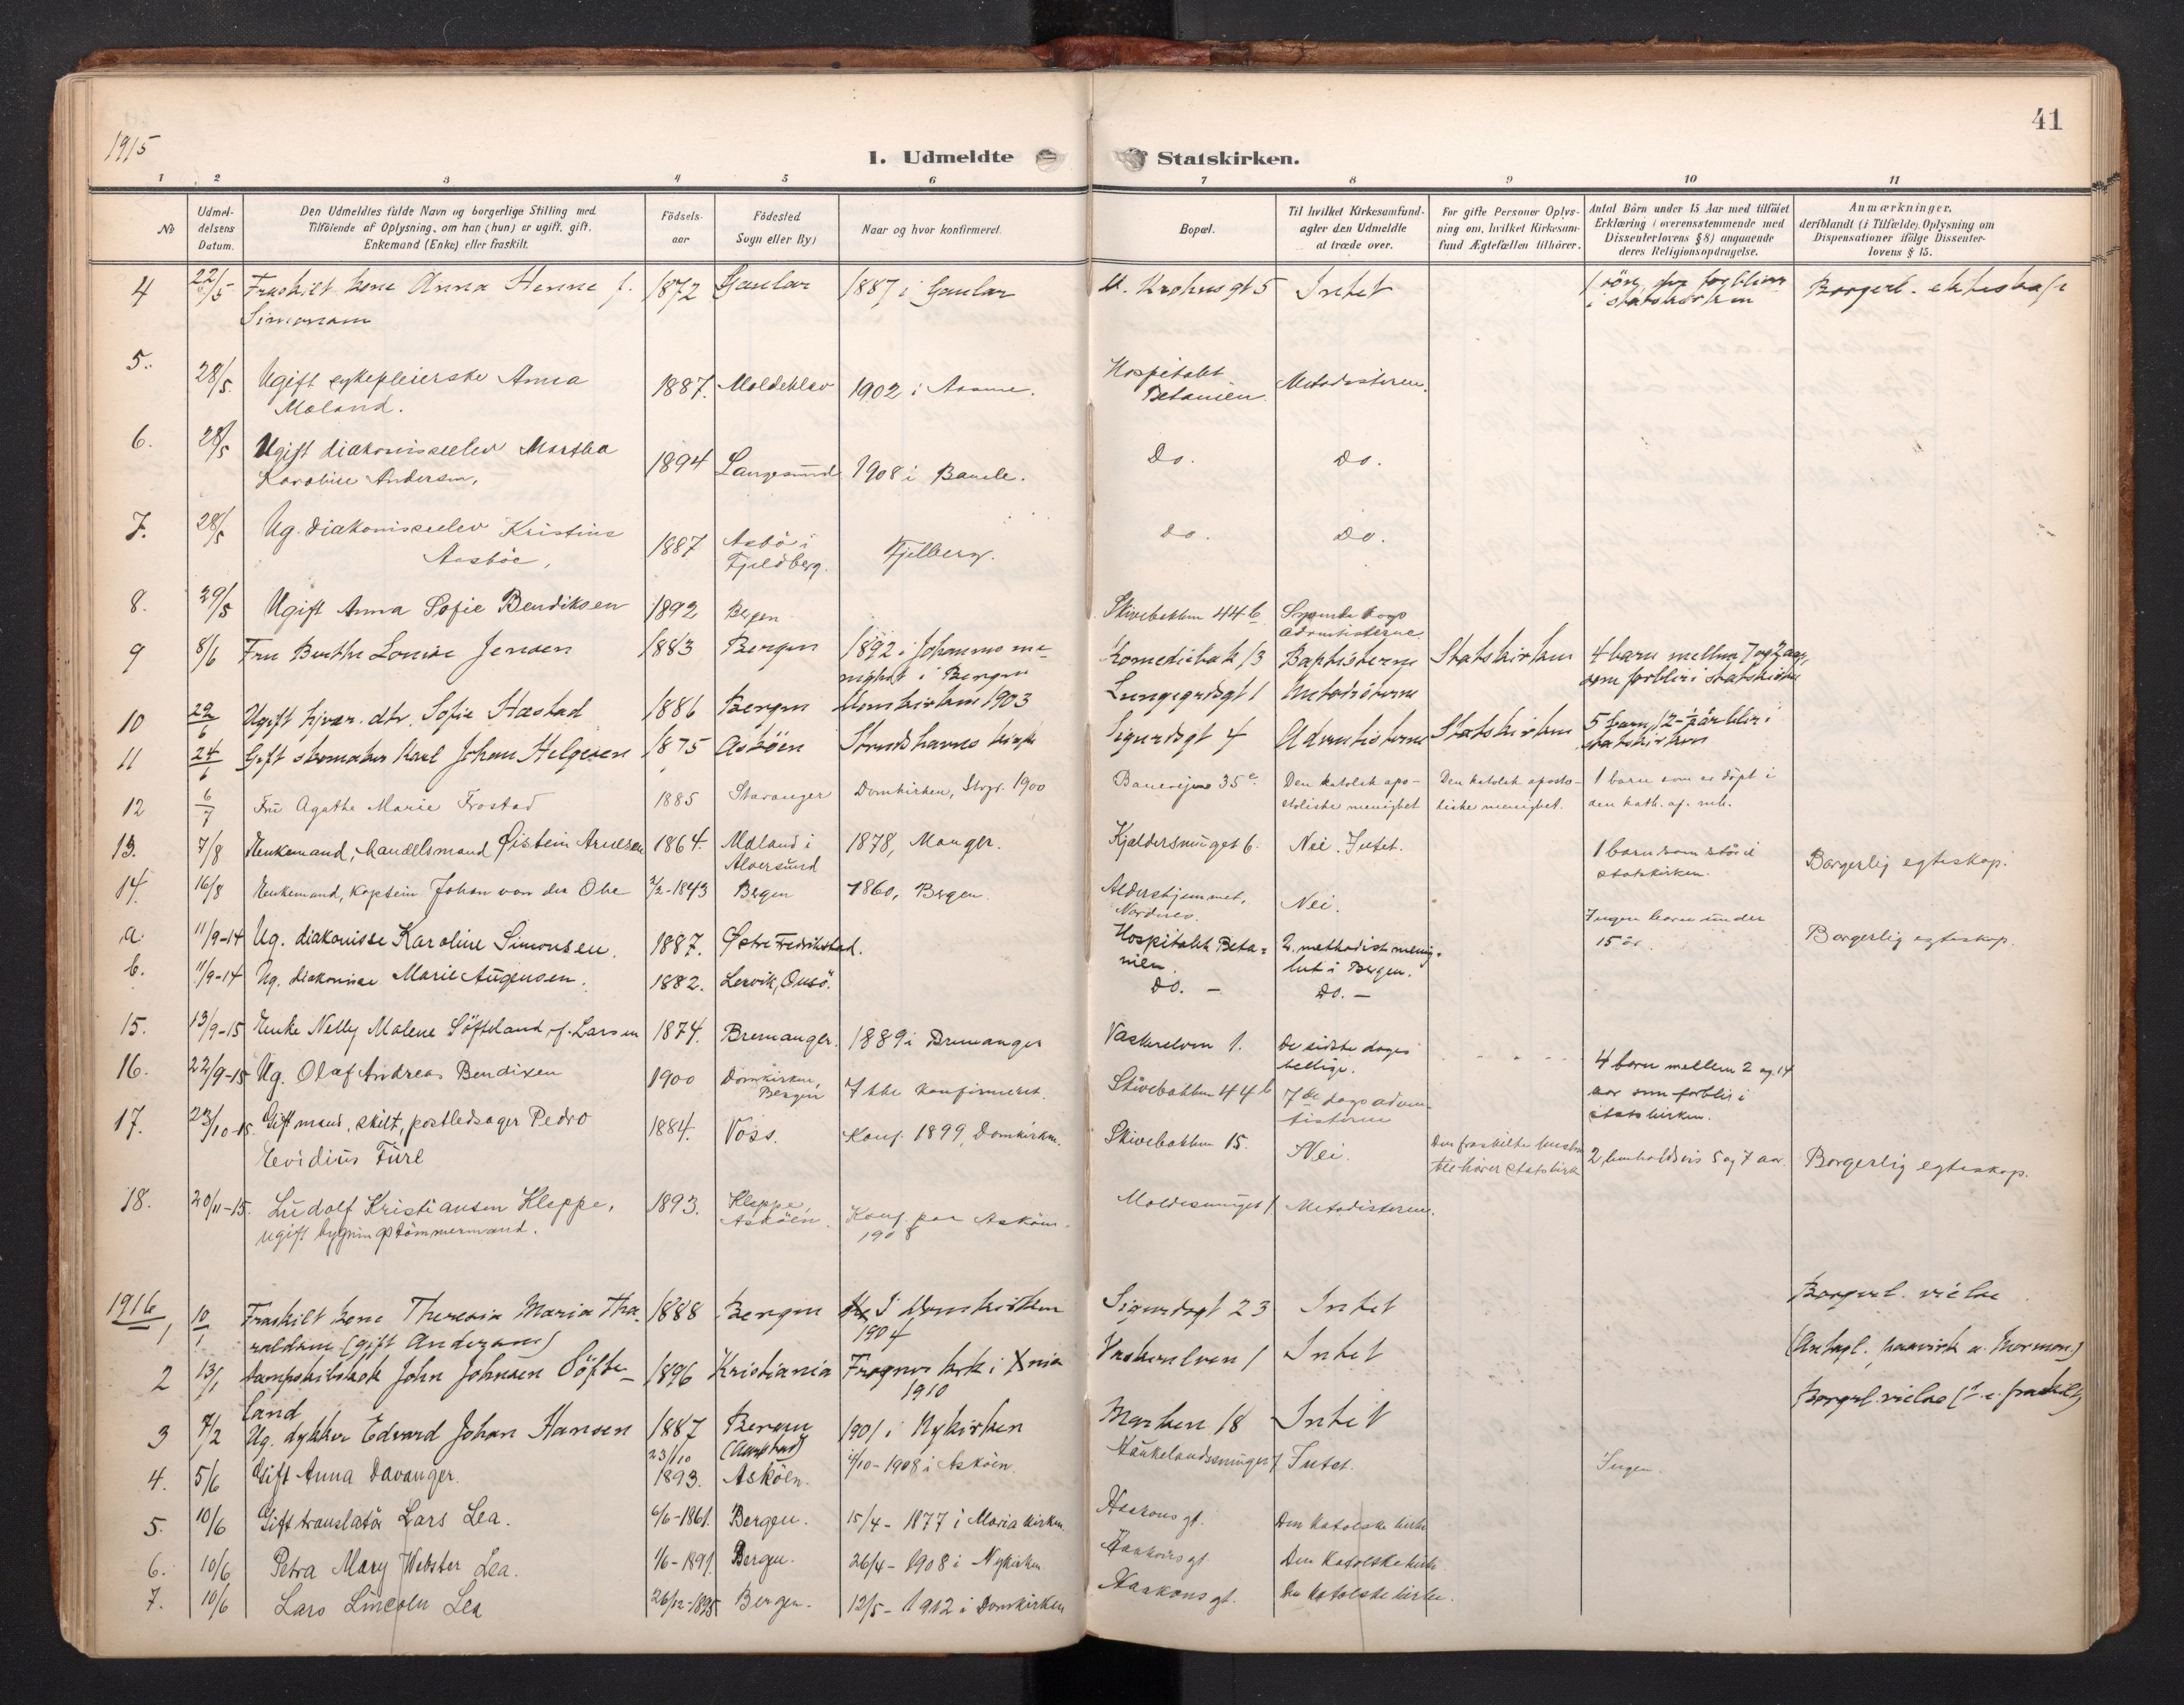 41
1915
I. Udmeldte Statskirken.
1 2 3 4 5 6 7 8 9 10 11
No
Udmel-
delsens
Datum.
Den Udmeldtes fulde Navn og borgerlige Stilling med
Tilføiende af Oplysning, om han (hun) er ugift, gift,
Enkemand (Enke) eller fraskilt.
Födsels-
aar
Födested
Sogn eller By)
Naar og hvor konfirmeret.
Bopæl.
Til hvilket Kirkesamfund-
agter den Udmeldte
at træde over.
For gifte Personer Oplys-
ning om, hvilket Kirkesam-
fund Ægtefællen tilhører.
Antal Börn under 15 Aar med tilföiet
Erklæring i overensstemmende med
Dissenterlovens § 8) angaaende
deres Religionsopdragelse.
Anmærkninger,
deriblandt (i Tilfælde) Oplysning om
Dispensationer ifölge Dissenter-
lovens § 15.
4 22/5 Fraskilt kone Anna Henne f. 1872 Gaular 1887 i Gaular gt 5 Intet Borgerl.
i statskirken
5. 28/5. Ugift sykepleierske Anna 1887. 1902 i Hospitalet Metodisterne.
Moland. Betanien.
6. 28/5 Ugift diakonisseelev Martha 1894 Langesund 1908 i Bamle. Do. Do.
Karoline Andersen,
7. 28/5 Ug. diakonisseelev Kristine 1887 Aasbö i Fjelberg. Do. Do.
Aasböe, Fjeldberg.
8. 29/5 Ugift Anna Sofie Bendiksen 1892 Bergen Skivebakken 44 b
Adventisterne.
9 8/6 Fru Berthe Louise Jensen 1883 Bergen 1892 i Johannes me- 13 Baptisterne Statskirken 4 barn mellem 7 og aar,
nighet i Bergen som forblir i statskirken
10 22/6 Ugift dtr. Sofie Hastad 1886 Bergen Domkirken 1903 Lungegrdsgt 1 Metodisterne
11 24/6 Gift skomaker Karl Johan Helgesen 1875 Asköen Strudshavns kirke Sigurdsgt 4 Adventisterne Statskirken 5 barn, 12-½ år blir i
statskirken
12 6/7 Fru Agathe Marie Frostad 1885 Stavanger Domkirken, Stvgr. 1900 35 Den katolsk apo- Den katolsk aposto- 1 barn som er döpt i
stoliske menighet liske menighet. den kath. ap. mh.
13. 7/8 Enkemand, handelsmand Øistein Arnesen 1864. Mdland i 1878, Manger. Kjeldersmuget 6. Nei. Intet. 1 barn som står i Borgerlig egteskap.
Alversund statskirken.
14. 16/8 Enkemand, Kaptein Johan von der Ohe 2/2-1843 Bergen 1860, Bergen. Aldershjemmet, Nei. Ingen barn under Borgerlig egteskap.
Nordnes. 15 år.
a. 11/9-14 Ug. diakonisse Karoline Simonsen. 1887. Østre Fredrikstad. Hospitalet Beta- 2. methodistmenig-
nien. het i Bergen.
b. 11/9-14 Ug. diakonisse Marie Augensen. 1882. Lervik, Onsö. Do. - Do. -
15. 13/9-15 Enke Nelly Malene Söfteland, f. Larsen 1874. Bremanger. 1889 i Bremanger Vaskerelven 1. De sidste dages 4 barn mellem 2 og 14
hellige. aar som forblir i
statskirken.
16. 22/9-15 Ug. Olaf Andreas Bendixen 1900 Domkirken, Ikke konfirmeret. Skivebakken 44 b 7de dags adven-
Bergen tisterne
17. 23/10-15. Gift mand, skilt, postledsager Pedro 1884. Voss. Konf. 1899, Domkirken. Skivebakken 15. Nei. Den fraskilte hustru 2, henholdsvis 5 og 7 aar. Borgerlig egteskap.
Evidius Fürl tilhører statskirk
18. 20/11-15. Ludolf Kristiansen Kleppe, 1893. Kleppe, Konf. paa Asköen. Moldesmuget 1 Metodisterne.
ugift bygningstömmermand. Asköen. 1908
1916
1 10/1 Fraskilt kone Theresia Maria Tha- 1888 Bergen I Domkirken Sigurdsgt 23 Intet Borgerl. vielse
raldsen (gift Andersen) 1904
2 13/1 Dampskibskok John Johnsen Söfte- 1896 Kristiania Frogner kirke i Xnia Vaskerelven 1 Intet (Antagl. paavirk. a. Mormon)
land 1910
3 7/2 Ug. dykker Edvard Johan Hansen 1887 Bergen 1901 i Nykirken Marken 18 Intet Borgerl. vielse
4. 5/6 Gift Anna Davanger. 23/10 1893. Asköen. 4/10-1908 i Asköen. Haukelandssmuget 1 Intet. Ingen.
5. 10/6 Gift translatör Lars Lea. 6/6-1861. Bergen. 15/4-1877 i Mariakirken Haakons gt. Den katolske kirke
6. 10/6 Petra Mary Webster Lea. 1/6-1891. Bergen. 26/4-1908 i Nykirken Haakons gt. Den katolske kirke.
7. 10/6 Lars Lincoln Lea 26/12-1895 Bergen. 12/5-1912 i Domkirken Haakons gt. Den katolske kirke.